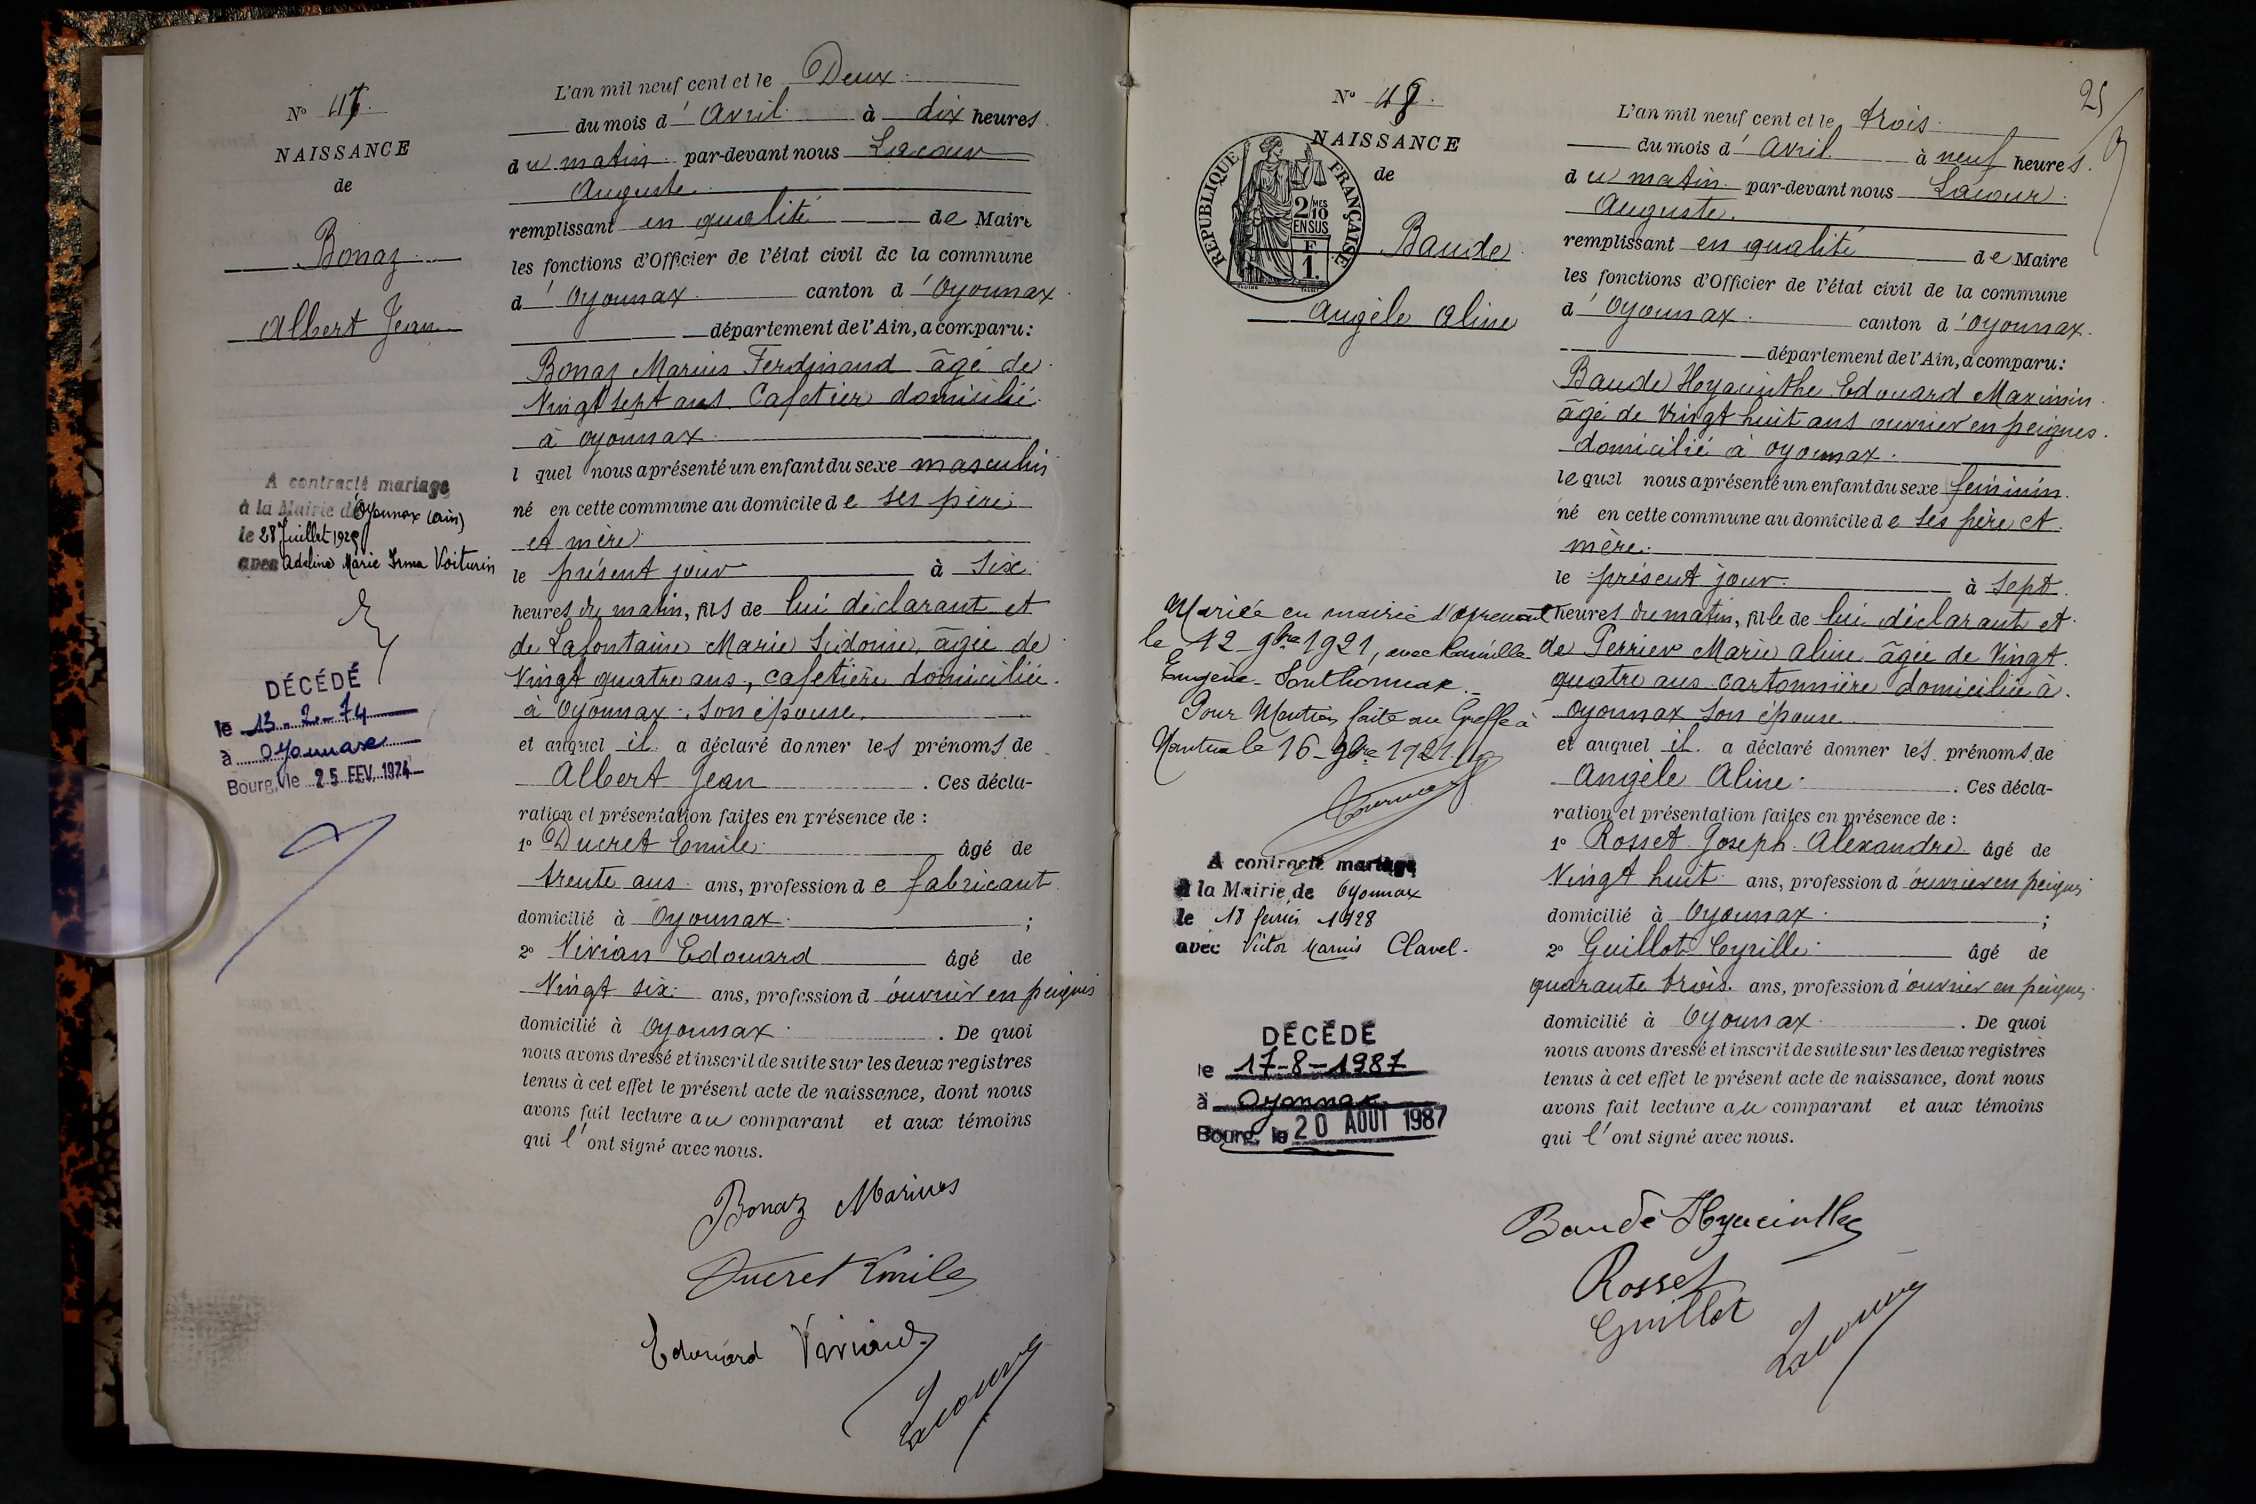 N° 47.
NAISSANCE
de
Bonaz
Albert Jean
A contracté mariage
à la Mairie d'Oyonnax (Ain)
le 28 Juillet 1925
avec Adeline Marie Irma Voiturin
DÉCÉDÉ
le 13-2-74
à Oyonnax
Bourg, le 25 FEV. 1974
L'an mil neuf cent et le Deux
du mois d'Avril à dix heures.
du matin par-devant nous Lacour
Auguste
remplissant en qualité de Maire
les fonctions d'Officier de l'état civil de la commune
d'Oyonnax canton d'Oyonnax.
département de l'Ain, a comparu:
Bonaz Marius Ferdinand âgé de
Vingt sept ans. Cafetier domicilié
à Oyonnax
l quel nous a présenté un enfant du sexe masculin
né en cette commune au domicile de ses père
et mère
le présent jour à Six
heures du matin, fils de lui déclarant et
de Lafontaine Marie Sidonie, âgée de
Vingt quatre ans, cafetière domiciliée.
à Oyonnax. Son épouse.
et auquel il a déclaré donner les prénoms de
Albert Jean . Ces décla-
ration et présentation faites en présence de :
1° Ducret Emile âgé de
trente ans ans, profession de fabricant
domicilié à Oyonnax ;
2° Vivian Edouard âgé de
Vingt six ans, profession d'ouvrier en peignes
domicilié à Oyonnax . De quoi
nous avons dressé et inscrit de suite sur les deux registres
tenus à cet effet le présent acte de naissance, dont nous
avons fait lecture au comparant et aux témoins
qui l'ont signé avec nous.
Bonaz Marius
Ducret Emile
Edouard Vivian
Lacour
25
N° 48.
NAISSANCE
de
RÉPUBLIQUE FRANÇAISE
2/10 MES
EN SUS
F
1.
Baude
Angèle Aline
Mariée en mairie d'Apremont
le 12 9bre 1921, avec Camille
Eugène Sonthonnax.
Pour Mention faite au Greffe à
Nantua le 16 9bre 1921.
A contracté mariage
à la Mairie de Oyonnax
le 18 février 1928
avec Victor Marius Clavel.
DÉCÉDÉ
le 17-8-1987
à Oyonnax
Bourg, le 20 AOUT 1987
L'an mil neuf cent et le trois
du mois d'Avril à neuf heures.
du matin par-devant nous Lacour
Auguste.
remplissant en qualité de Maire
les fonctions d'Officier de l'état civil de la commune
d'Oyonnax canton d'Oyonnax.
département de l'Ain, a comparu:
Baude Hyacinthe Edouard Maximin
âgé de Vingt huit ans ouvrier en peignes.
domicilié à Oyonnax.
lequel nous a présenté un enfant du sexe féminin.
né en cette commune au domicile de ses père et
mère.
le présent jour à Sept
heures du matin, fille de lui déclarant et
de Perrier Marie Aline âgée de Vingt
quatre ans cartonnière domiciliée à
Oyonnax Son épouse
et auquel il a déclaré donner les prénoms de
Angèle Aline . Ces décla-
ration et présentation faites en présence de :
1° Rosset Joseph Alexandre âgé de
Vingt huit ans, profession d'ouvrier en peignes
domicilié à Oyonnax ;
2° Guillot Cyrille âgé de
quarante trois ans, profession d'ouvrier en peignes
domicilié à Oyonnax . De quoi
nous avons dressé et inscrit de suite sur les deux registres
tenus à cet effet le présent acte de naissance, dont nous
avons fait lecture au comparant et aux témoins
qui l'ont signé avec nous.
Baude Hyacinthe
Rosset
Guillot
Lacour